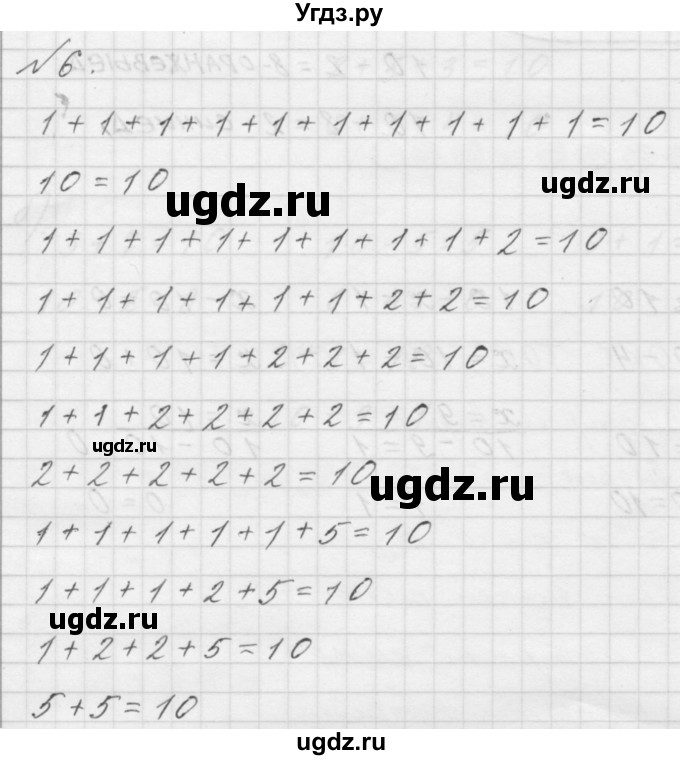 Угдз.ру
№6.
1+1+1+1+1+1+1+1+1+1=10
10=10
ugdz.ru
ugdz.ru
1+1+1+1+1+1+1+1+2=10
1+1+1+1+1+1+2+2=10
1+1+1+1+2+2+2=10
1+1+2+2+2+2=10
ugdz.ru
2+2+2+2+2=10
ugdz.ru
1+1+1+1+1+5=10
1+1+1+2+5=10
ugdz.ru
1+2+2+5=10
5+5=10
ugdz.ru